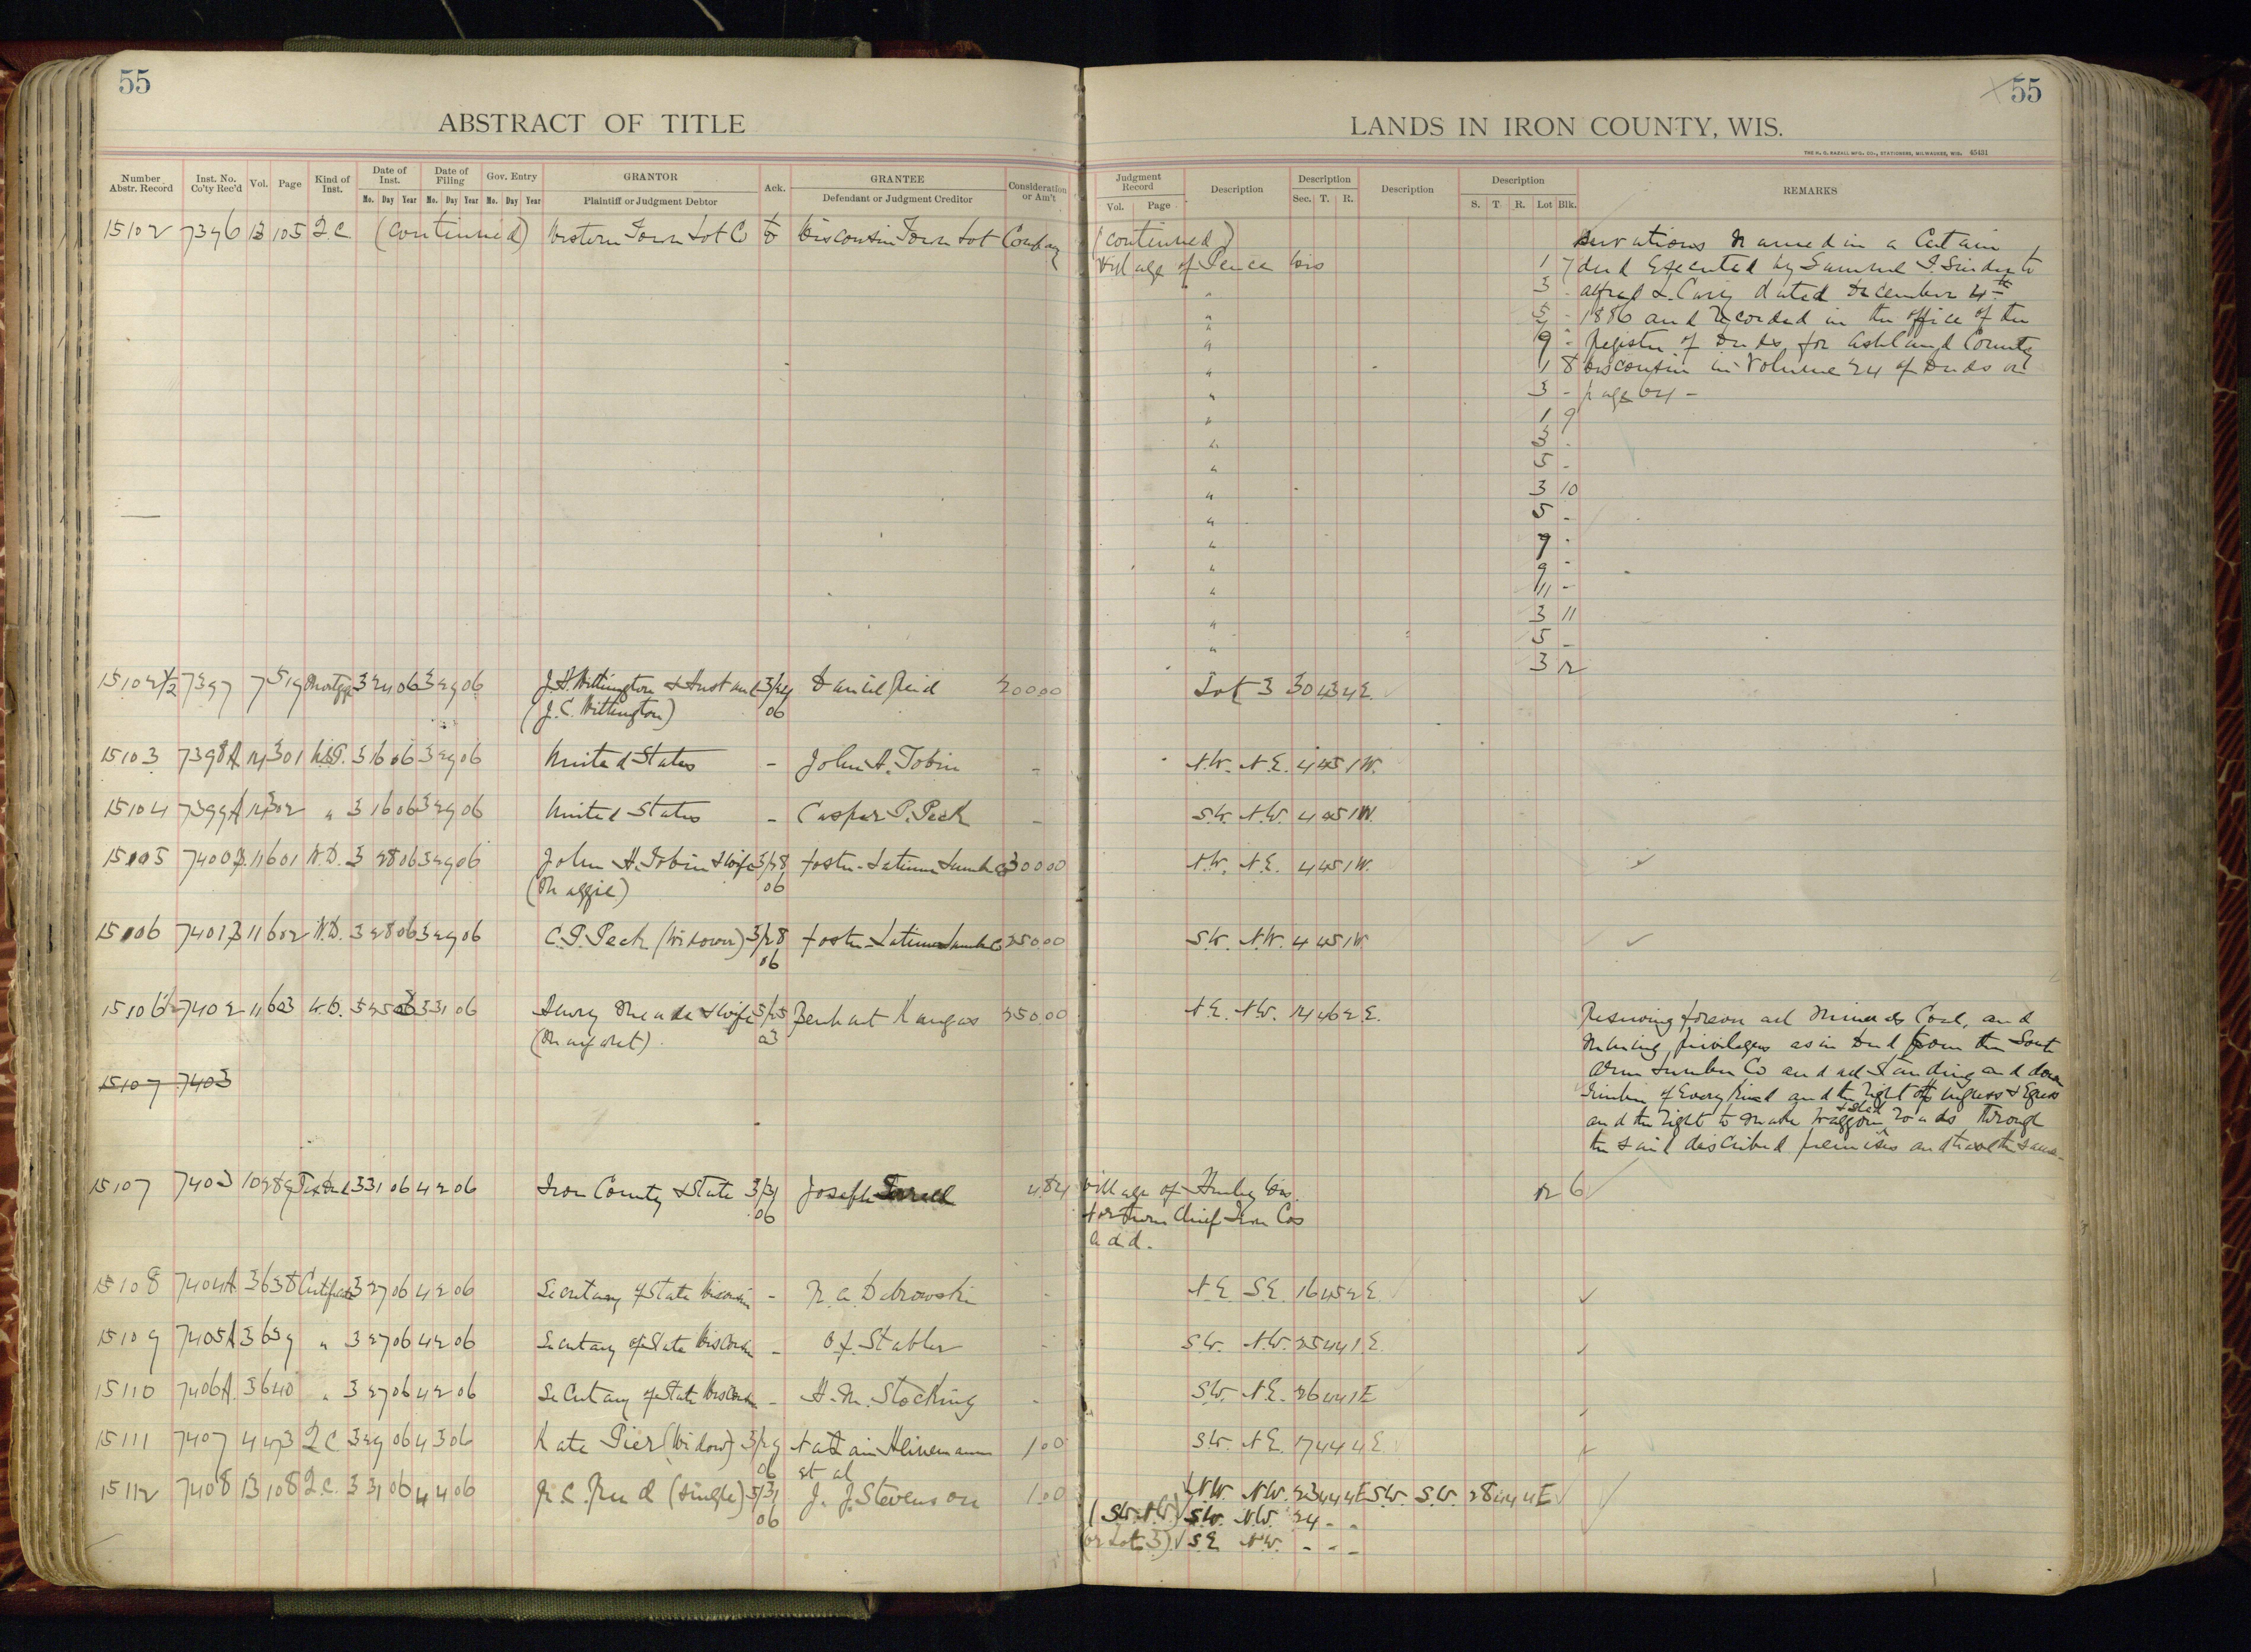 55
ABSTRACT OF TITLE
Number Abstr. Record
Inst. No. Co'ty Rec'd
Vol.
Page
Kind of Inst.
Date of Inst.
Mo. Day Year
Date of Filing
Mo. Day Year
Gov. Entry
Mo. Day Year
GRANTOR
Plaintiff or Judgment Debtor
Ack.
GRANTEE
Defendant or Judgment Creditor
Consideration or Am't
15102 7396 13 105 Q C (continued) Western Town Lot Co to Wisconsin Town Lot Company
15102 1/2 7397 7 519 Mortgage 3 24 06 3 29 06 J. H. Wittington & Husband 3/24 Daniel Reid 200 00
(J. C. Wittington) 06
15103 7398 A 14 301 U.S.P. 3 16 06 3 29 06 United States - John H. Tobin -
15104 7399 A 14 302 " 3 16 06 3 29 06 United States - Casper P. Peck -
15105 7400 11 601 W.D. 3 28 06 3 29 06 John H. Tobin & Wife 3/28 Foster-Latimer Lumber Co 300 00
(Maggie) 06
15106 7401 11 602 W.D. 3 28 06 3 29 06 C. P. Peck (Widower) 3/28 Foster-Latimer Lumber Co 250 00
06
15106 1/2 7402 11 603 W.D. 5 25 03 3 31 06 Henry Meade & Wife 5/25 Kangas 250 00
(Margaret) 03
15107 7403
15107 7403 10 289 Tax Deed 3 31 06 4 2 06 Iron County & State 3/31 Joseph 4.84
06
15108 7404 A 3 638 Certificate 3 27 06 4 2 06 Secretary of State Wisconsin - Dobrowski -
15109 7405 A 3 639 " 3 27 06 4 2 06 Secretary of State Wisconsin - O. F. Stabler -
15110 7406 A 3 640 " 3 27 06 4 2 06 Secretary of State Wisconsin - H. M. Stocking -
15111 7407 4 473 Q C 3 29 06 4 3 06 Kate Pier (Widow) 3/29 Heinemann 1.00
06 et al
15112 7408 13 108 Q.C. 3 31 06 4 4 06 (single) 3/31 J. J. Stevenson 1.00
06
55
LANDS IN IRON COUNTY, WIS.
THE H. G. RAZALL MFG. CO., STATIONERS, MILWAUKEE, WIS. 45431
Judgment Record
Vol. Page
Description
Description
Sec. T. R.
Description
Description
S. T. R. Lot Blk.
REMARKS
(continued) servations named in a Certain
Village of Pence Wis 1 7 deed Executed by Samuel S. to
" 3 - Alfred L. Cary dated December 4th
" 5 - 1886 and Recorded in the office of the
" 7
" 9 - Register of Deeds for Ashland County
" 1 8 Wisconsin in Volume 24 of Deeds on
" 3 - page 64 -
" 1 9
" 3 -
" 5 -
" 3 10
" 5 -
" 7 -
" 9 -
" 11 -
" 3 11
" 5 -
3 12
Lot 3 30 43 4 E.
N.W. N.E. 4 45 1 W.
S.W. N.W. 4 45 1 W.
N.W. N.E. 4 45 1 W.
S.W. N.W. 4 45 1 W.
N.E. N.W. 14 46 2 E. Reserving thereon all Minerals Coal, and
Mining privileges as in Deed from the South
Lumber Co and all Standing and down
Timber of Every Kind and the right of ingress & Egress
and the right to make Waggon & Sled roads through
the said described premises and
Village of Hurley Wis. 12 6
Northern Chief Iron Cos
add.
N.E. S.E. 16 45 2 E.
S.W. N.W. 25 44 1 E.
S.W. N.E. 26 44 1 E
S.W. N.E. 17 44 4 E.
N.W. N.W. 23 44 4 E S.W. S.W. 28 44 4 E
(S.W. N.W.) S.W. N.W. 24 - -
(or Lot 3) S.E. N.W. - - -